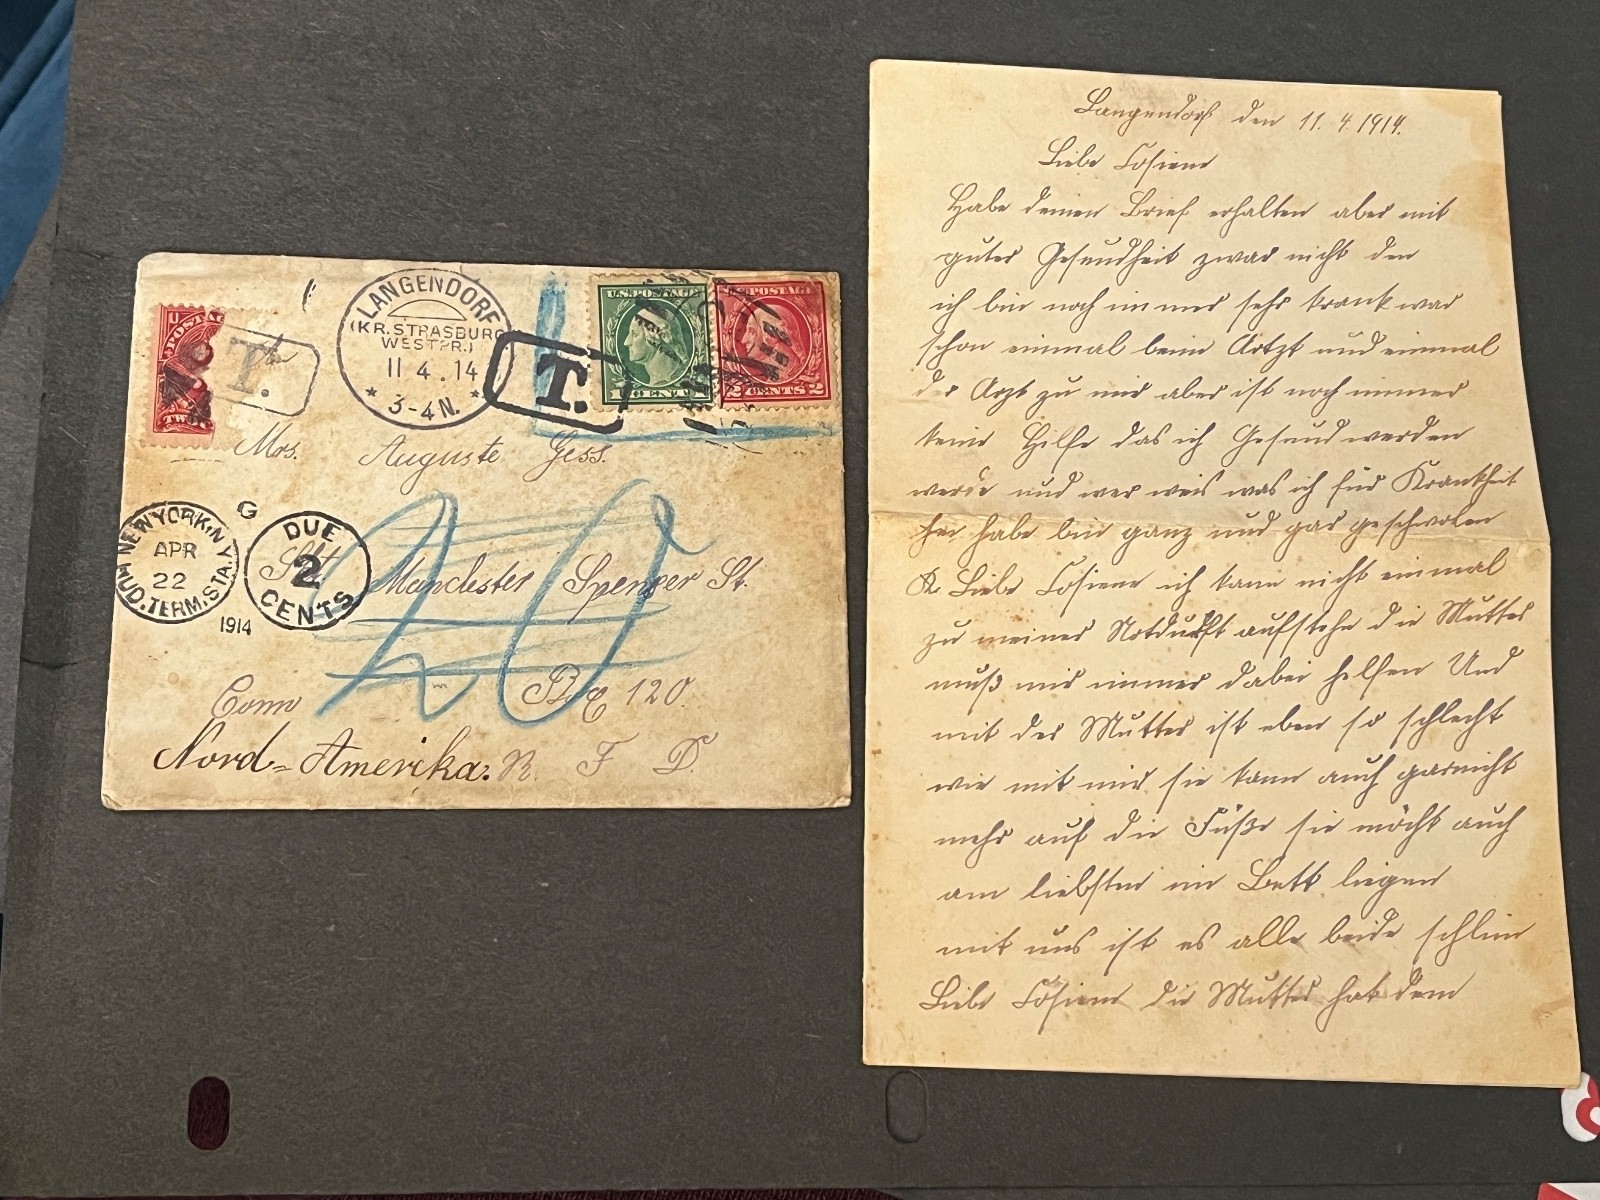 U.S. POSTAGE
T.
LANGENDORF
(KR. STRASBURG
WESTPR.)
11 4. 14
3-4 N.
T.
U.S. POSTAGE
CENT
U.S. POSTAGE
2 CENTS 2
Mrs. Auguste Gess.
NEW YORK, N.Y.
APR
22
HUD. TERM. STA.
1914
G
DUE
2
CENTS
20
Manchester Spenzer St.
Conn Box 120.
Nord-Amerika. R. F D.
Langendorf den 11. 4. 1914.
Liebe Cosiene
Habe deinen Brief erhalten aber mit
guter Gesundheit zwar nicht den
ich bin noch immer sehr krank war
schon einmal beim Artzt und einmal
der Arzt zu mir aber ist noch immer
keine Hilfe das ich Gesund werden
werde und wer weis was ich für Krankheit
hir habe bin ganz und gar geschwolen
Liebe Cosiene ich kann nicht einmal
zu meiner Notdurft aufstehn die Mutter
muß mir immer dabei helfen Und
mit der Mutter ist eben so schlecht
wie mit mir sie kann auch garnicht
mehr auf die Füße sie möcht auch
am liebsten im Bett liegen
mit uns ist es alle beide schlim
Liebe Cosiene die Mutter hat dem